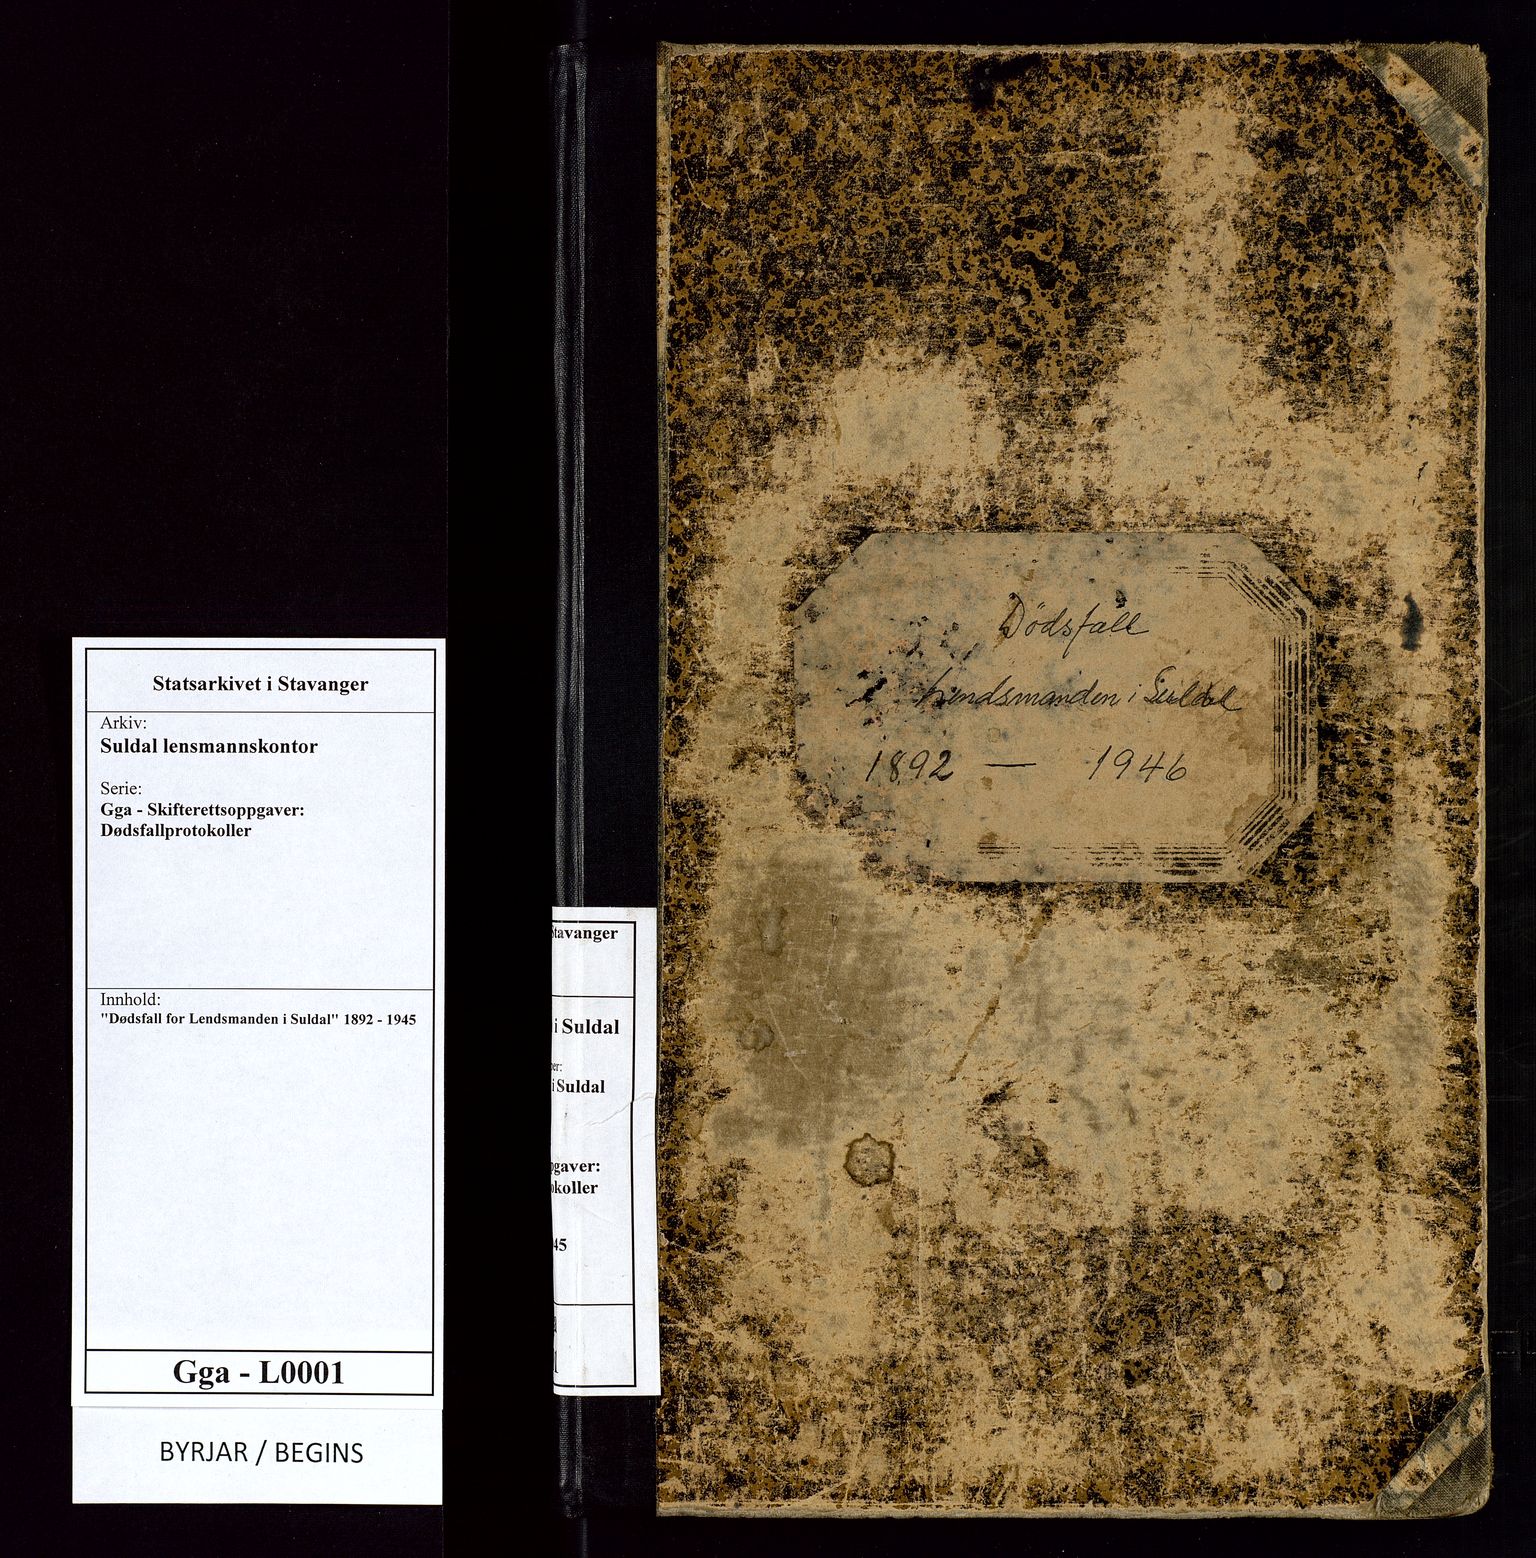 Statsarkivet i Stavanger
Arkiv:
Suldal lensmannskontor
Serie:
Gga - Skifterettsoppgaver:
Dødsfallprotokoller
Innhold:
"Dødsfall for Lendsmanden i Suldal" 1892 - 1945
Gga - L0001
BYRJAR / BEGINS
Stavanger
i Suldal
i Suldal
gaver:
koller
45
Dödsfall
Lendsmanden i Suldal
1892 — 1946